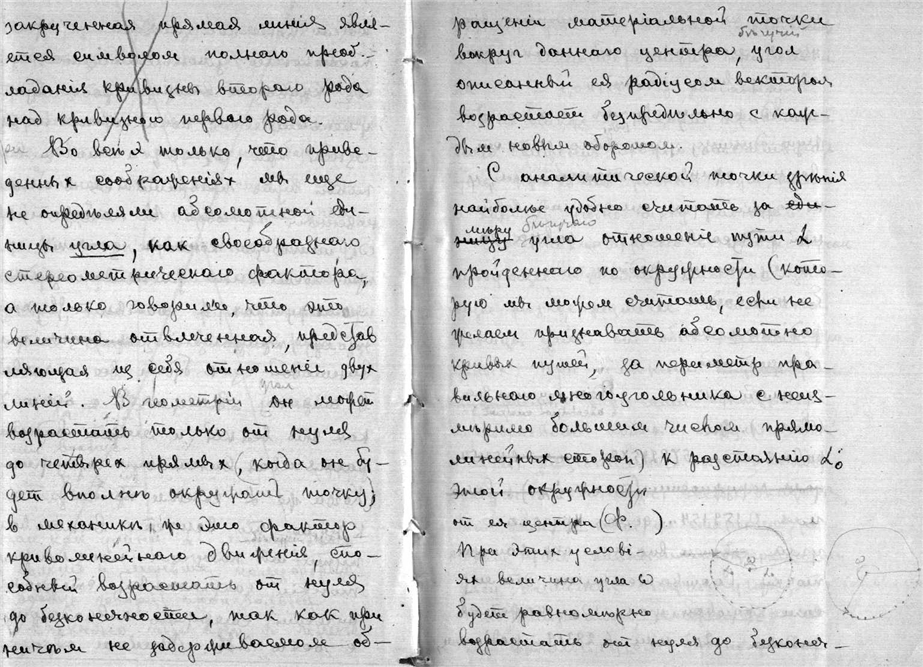 закрученная прямая линія явля-
ется символомъ полнаго преоб-
ладанія кривизны второго рода
над кривизною перваго рода.
Во всѣхъ только, что приве-
денныхъ соображеніяхъ мы еще
не опредѣляли абсолютной еди-
ницы угла, как своеобразнаго
стереометрическаго фактора,
а только говорили, что это
величина отвлеченная, представ
ляющая из себя отношеніе двух
линій. В геометріи угол он может
возрастать только от нуля
до четырех прямых (когда он бу-
дет вполнѣ окружать точку)
в механикѣ же это фактор
криволинейнаго движенія, спо-
собный возрастать от нуля
до безконечности, так как при
ничѣм не задерживаемом об-
ращеніи матеріальной точки
вокруг даннаго центра, бѣгучій угол
описанный ея радіусом вектором
возрастает безпредѣльно с каж-
дым новым оборотом.
С аналитической точки зрѣнія
наиболѣе удобно считать за еди-
ницу мѣру бѣгучаго угла отношеніе пути L
пройденнаго по окружности (кото-
рую мы можем считать, если не
желаем признавать абсолютно
кривых путей, за периметр пра-
вильнаго многоугольника с неиз-
мѣримо большим числом прямо-
линейных сторон) к разстоянію L₀
этой окружности
от ея центра (ф. )
При этих услові-
ях величина угла ω
будет равномѣрно
возрастать от нуля до безконеч-